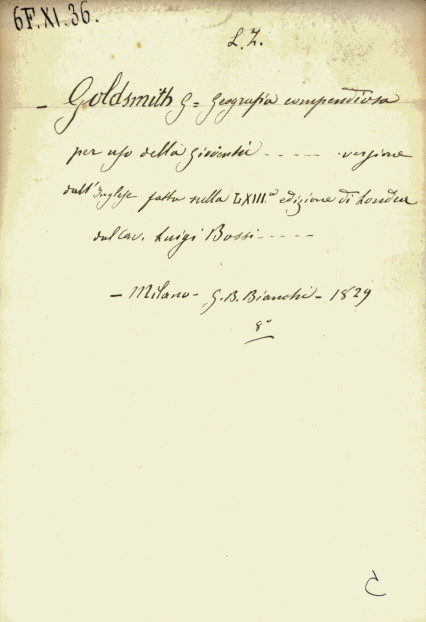 6F.XI.36.
L. Z.
- Goldsmith G= Geografia compendiosa
per uso della Gioventù - - - - - versione
dall'Inglese fatta sulla LXIII.a edizione di Londra
dal Cav. Luigi Bossi - - - - -
- Milano - G. B. Bianchi - 1829
8°
C